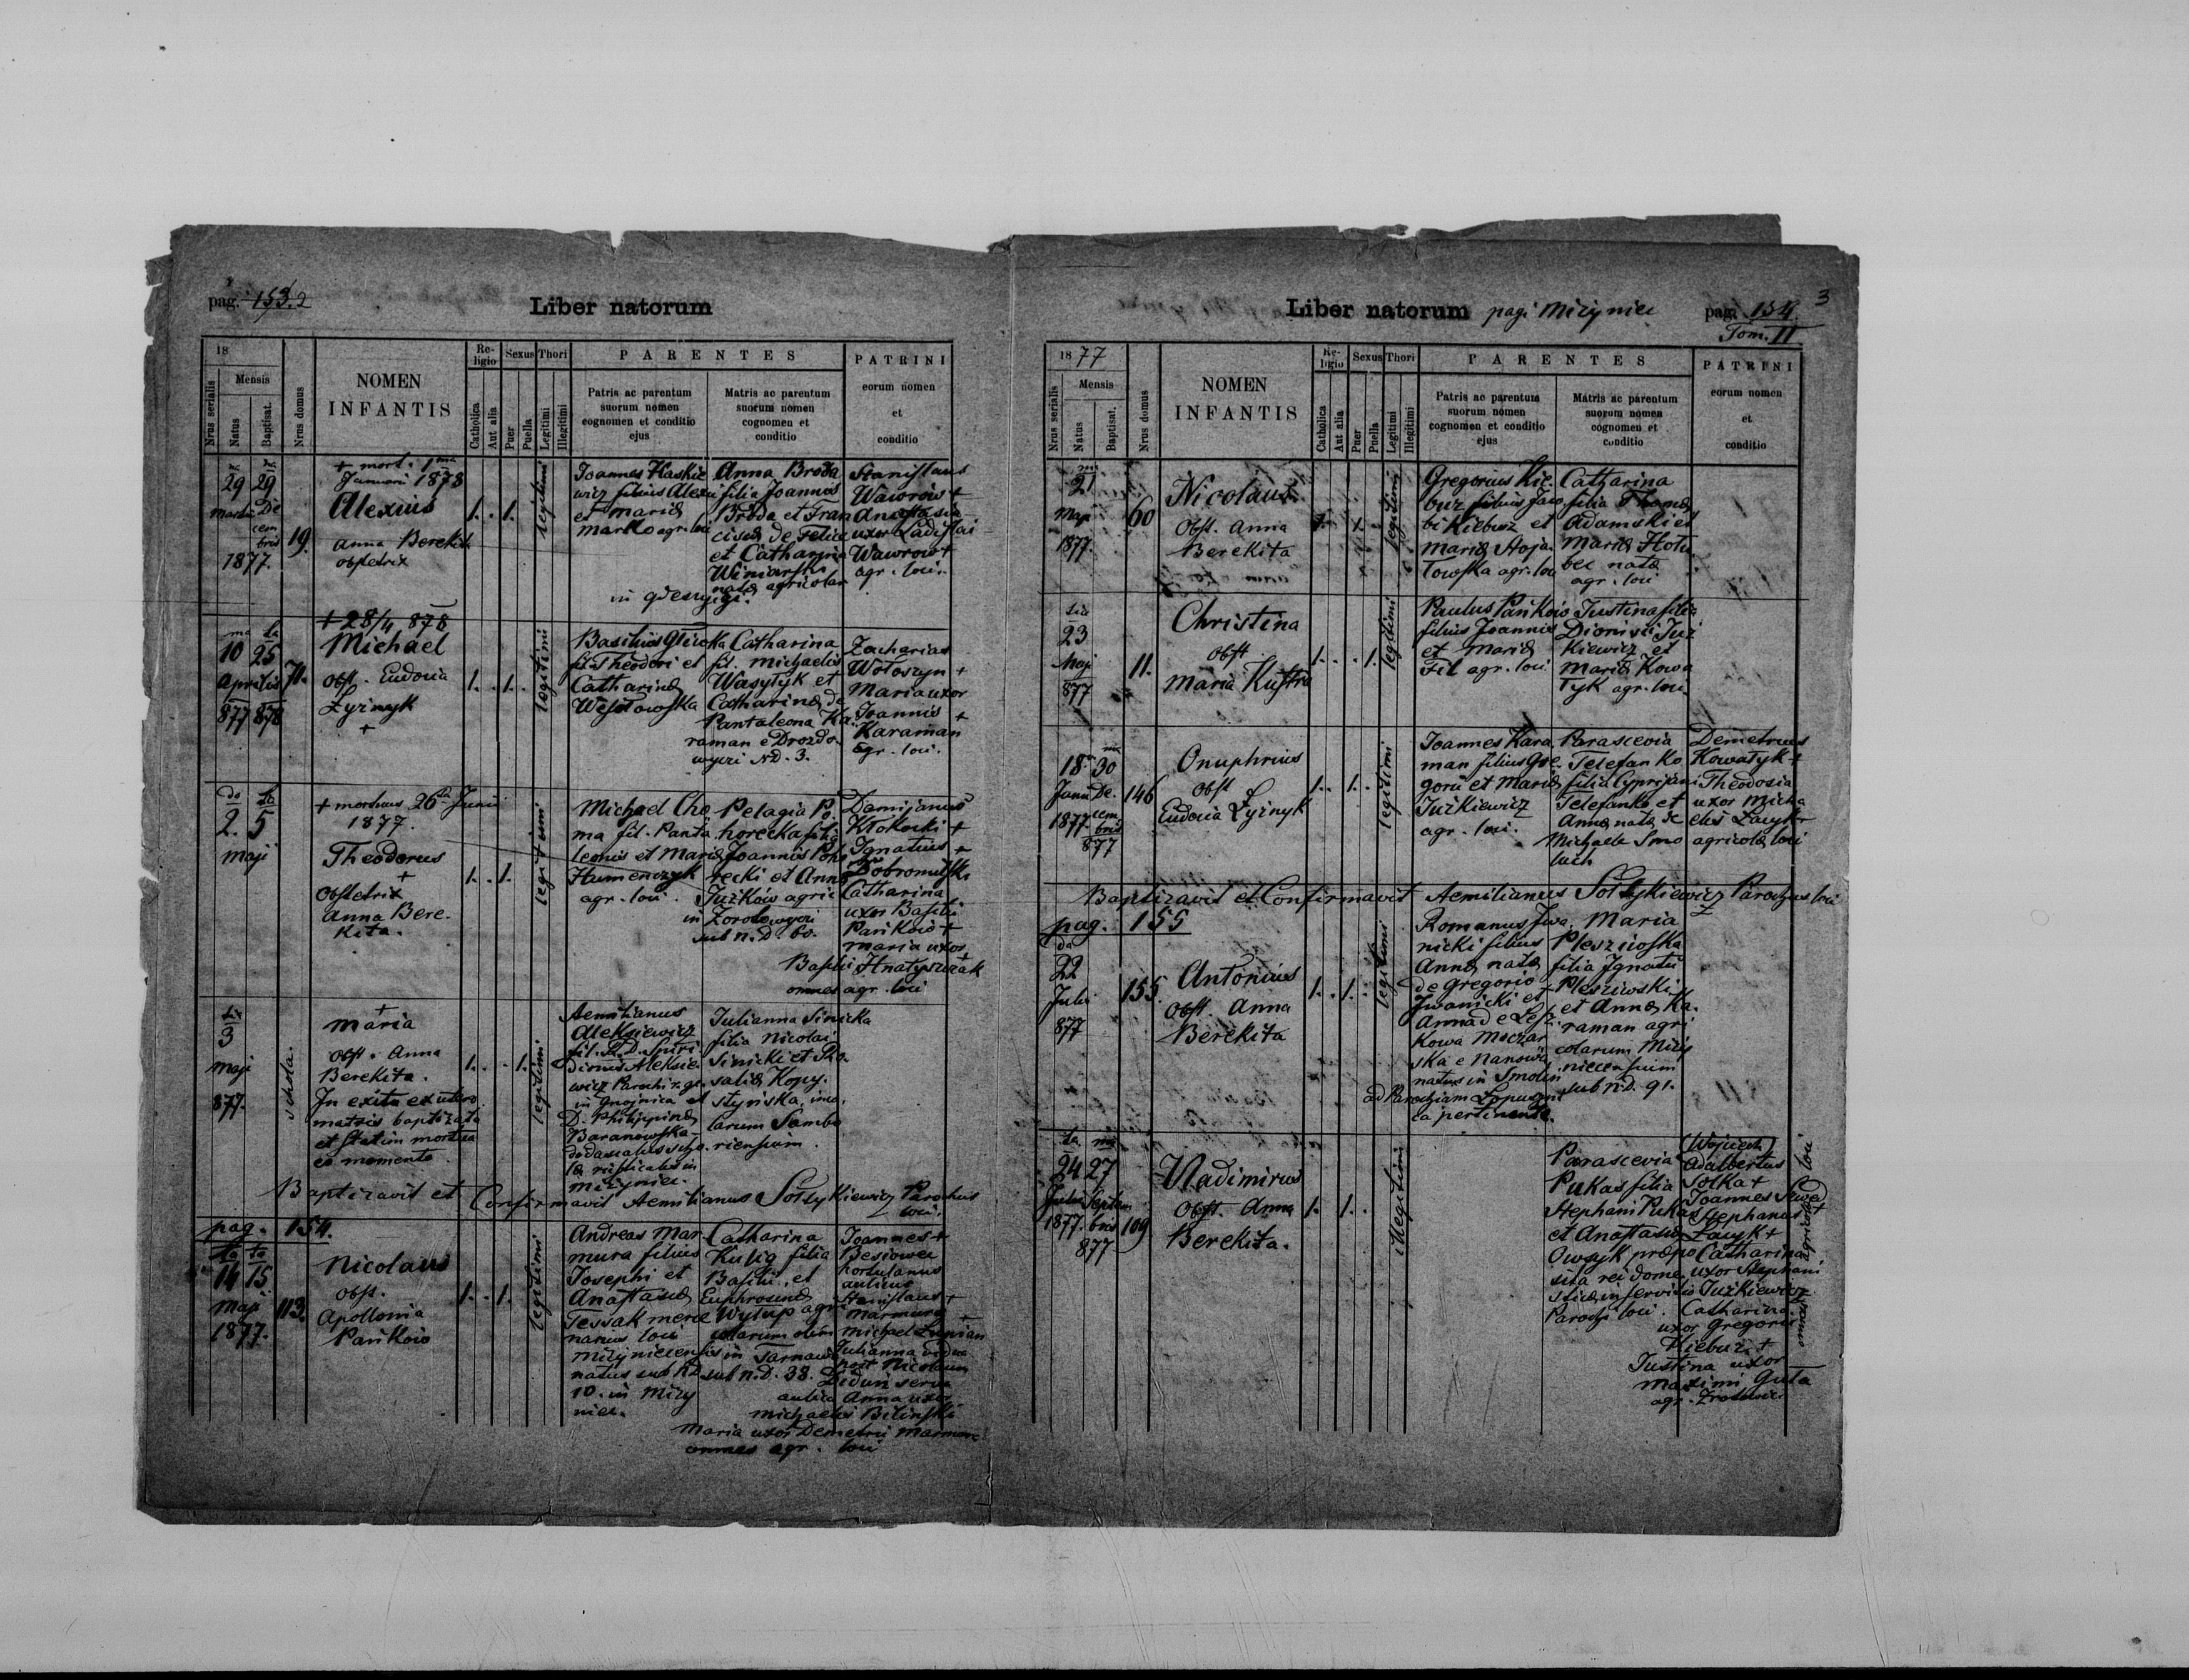 pag. 153. 2
Liber natorum
18
Mensis
Nrus serialis
Natus
Baptisat.
Nrus domus
NOMEN
INFANTIS
Re-
ligio
Catholica
Aut alia
Sexus
Puer
Puella
Thori
Legitimi
Illegitimi
PARENTES
Patris ac parentum
suorum nomen
cognomen et conditio
ejus
Matris ac parentum
suorum nomen
cognomen et
conditio
PATRINI
eorum nomen
et
conditio
29 29
Martii De
cem
bris
1877.
19.
+ mort. 1ma
Januarii 1878
Alexius
Anna Berekita
obstetrix
1. . 1.
legitimi
Joannes Haśkie
wicz filius Alexii
et Mariæ
Marko agr. loci
Anna Broda
filia Joannis
Broda et Fran
ciscæ de Felice
et Catharina
Winiarski
natæ agricolar
in
Stanislaus
Wawrów +
Anastasia
uxor Ladislai
Wawrów +
agr. loci.
10 25
Aprilis
877 878
71.
+ 28/4 878
Michael
obst. Eudoxia
Żyżnyk
+
1. . 1.
legitimi
Basilius
fil. Theodori et
Catharinæ
Wesołowska
Catharina
fil. Michaelis
Wasylyk et
Catharinæ de
Pantaleona Ka
raman e Drozdo
wyczi ND. 3.
Zacharias
Wołoszyn +
Maria uxor
Joannis +
Karaman
agr. loci.
2. 5
Maji
+ mortuus 26ta Junii
1877.
Theodorus
+
Obstetrix
Anna Bere-
kita.
1. . 1.
legitimi
Michael Cho
ma fil. Panta
leonis et Mariæ
Humenczyk
agr. loci.
Pelagia Po.
horecka filia
Joannis Poho
recki et Annæ
Jużków agric
in
sub n. D. 60.
Damijanus
Kłokocki +
Ignatius +
Dobromilski
Catharina
uxor Basilii
Pańków +
Maria uxor
Basilii Hnatyszak +
omnes agr. loci
3
Maji
877.
schola.
+
Maria
obst. Anna
Berekita.
In exitu ex utero
matris baptizata
et statim mortua
eo momento.
1. . . 1.
legitimi
Aemilianus
Aleksiewicz
fil. R. D. Spiri
dionis Aleksie
wicz Parochi r. gr.
in Gnojnica et
D. Philippinæ
Baranowska
in
Miżyniec.
Julianna Sinicka
filia Nicolai
Sinicki et Ro
saliæ Kopy.
styńska, inco
larum Sambo
riensium.
Baptizavit et Confirmavit Aemilianus Sołtykiewicz Parochus
loci.
pag. 154.
14 15
Maji
1877.
113.
Nicolaus
obst.
Apollonia
Pańków
1. . 1.
legitimi
Andreas Mar
mura filius
Josephi et
Anastasiæ
Tessak merce
narius loci
Miżyniecensis
natus sub ND
10. in Miży
niec.
Catharina
Kulig filia
Basilii et
Euphrosinæ
Wytup agri
colarum olim
in Tarnawa
sub n. D. 38.
Joannes +
Besiowec
hortulanus
aulicus
Stanislaus +
Marmura
Michael
Julianna vidua
post Nicolaum
aulica Anna uxor
Michaelis Biliński
Maria uxor Demetrii Marmura
omnes agr. loci
Liber natorum pagi Miżyniec
pag. 154. 3
Tom. II
1877
Mensis
Nrus serialis
Natus
Baptisat.
Nrus domus
NOMEN
INFANTIS
Re-
ligio
Catholica
Aut alia
Sexus
Puer
Puella
Thori
Legitimi
Illegitimi
PARENTES
Patris ac parentum
suorum nomen
cognomen et conditio
ejus
Matris ac parentum
suorum nomen
cognomen et
conditio
PATRINI
eorum nomen
et
conditio
21
Maji
1877.
60
Nicolaus
Obst. Anna
Berekita
1. . 1.
legitimi
Gregorius Kie
busz filius Jaco
bi Kiebusz et
Mariæ Stoja
łowska agr. loci
Catharina
filia Thomæ
Adamski et
Mariæ Hołu
bec nata
agr. loci
23
Maji
877
11.
Christina
obst.
Maria Kustra
1. . . 1.
legitimi
Paulus Pańków
filius Joannis
et Mariæ
Fil agr. loci
Justina filia
Dionisii Juz
kiewicz et
Mariæ Kowa
łyk agr. loci.
18 30
Junii De.
1877. cem
bris
877
146
Onuphrius
obst
Eudoxia Żyżnyk
1. . 1.
legitimi
Joannes Kara
man filius Gre
gorii et Mariæ
Jużkiewicz
agr. loci.
Parascevia
Telefanko
filia Cypriani
Telefanko et
Anna nata de
Michaele Smo
luch
Demetrius
Kowałyk +
Theodosia
uxor Micha
elis Łacyk +
agricolæ loci
Baptizavit et Confirmavit Aemilianus Sołtykiewicz Parochus loci
pag. 155
22
Julii
877
155.
Antonius
Obst. Anna
Berekita
1. . 1.
legitimi
Romanus Iwa
nicki filius
Annæ nata
de Gregorio
Iwanicki et
Anna de
kowa Moczar
ska e Nanowa
natus in Smolin
ad Parochiam
ca pertinente.
Maria
Plesziwska
filia Ignatii
Pleszivski
et Annæ Ka.
raman agri
colarum Miży
niecensium
sub n. D. 91.
24 27
Julii Septem
1877. bris
877
109
Vladimirus
Obst. Anna
Berekita.
1. . 1.
illegitimi
Parascevia
Pukas filia
Stephani Pukas
et Anastasiæ
Owsyk præpo
sita rei dome
sticæ in servitio
Parochi loci.
(Wojciech)
Adalbertus
Solka +
Joannes Szwed
Stephanus +
Łacyk +
Catharina
uxor Stephani
Jużkiewicz
Catharina
uxor Gregorii
Kiebuz +
Justina uxor
Maximi Guła
agr.
omnes agricolæ loci